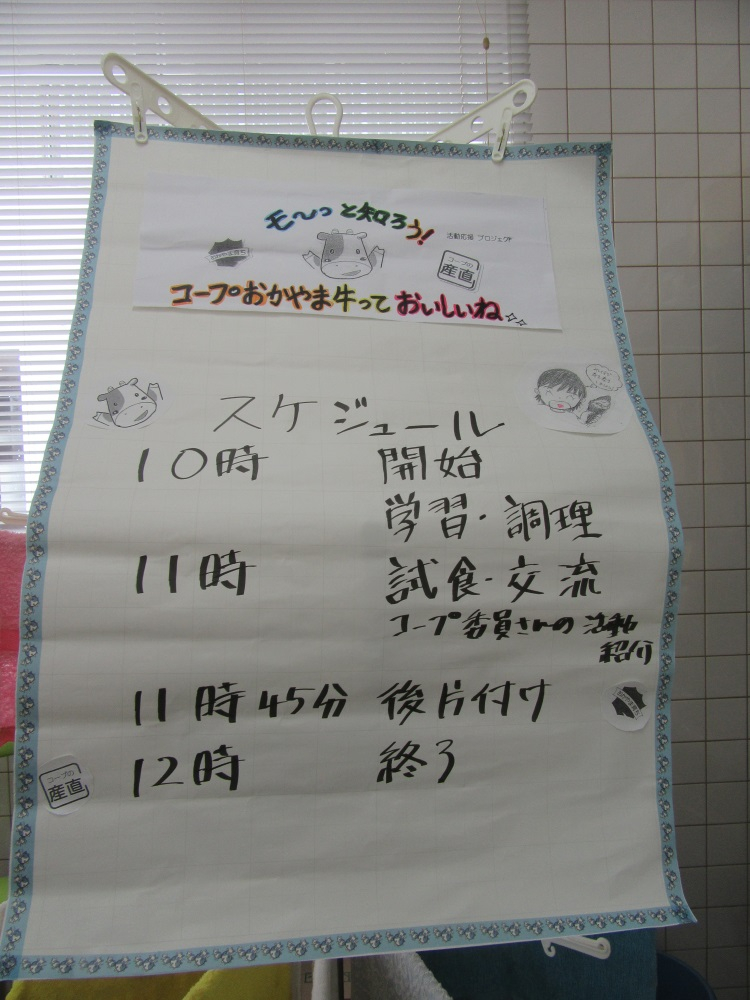 モ〜っと知ろう!
活動応援 プロジェクト
コープの
産直
コープおかやま牛って おいしいね
スケジュール
10時 開始
学習・調理
11時 試食・交流
コープ委員さんの 活動
紹介
11時45分 後片付け
12時 終了
コープの
産直